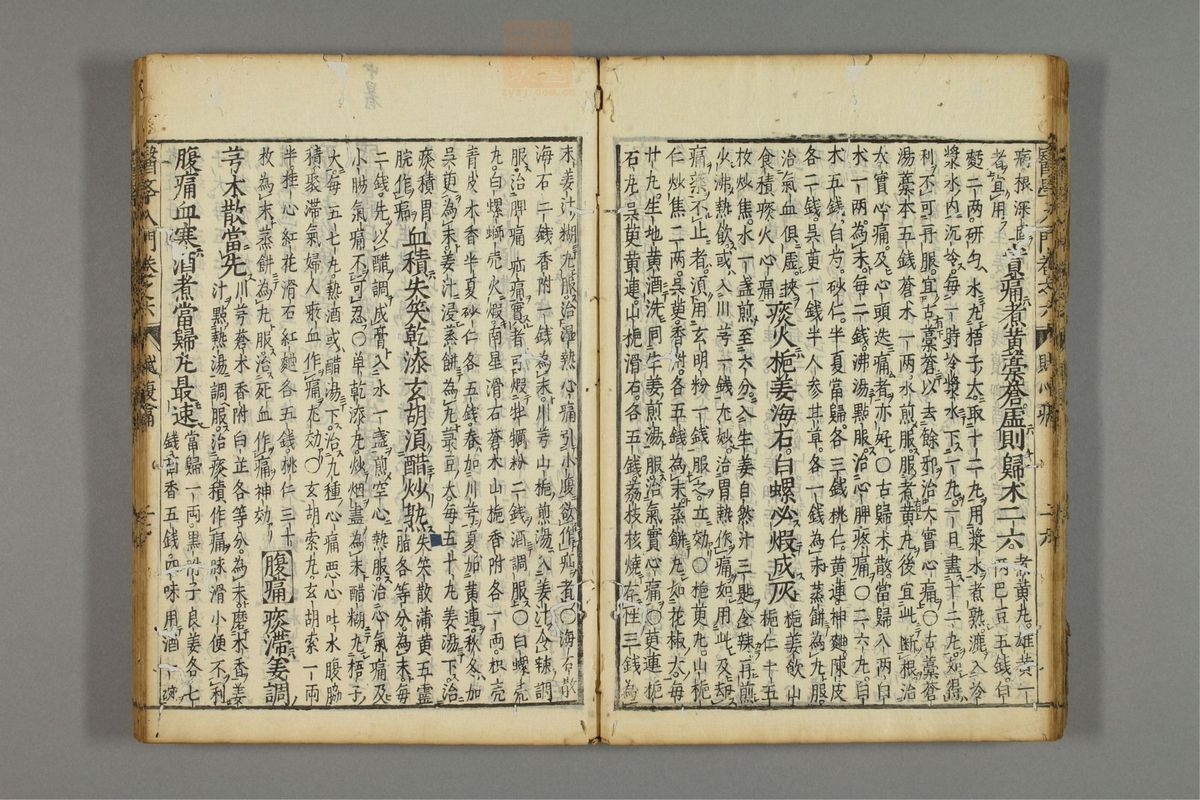 者宜用
實痛煮黃藁蒼虛則歸术二六
煮黃丸雄黃一
兩巴豆五錢白
麪二兩研勻水丸梧子大取二十二丸用漿水煮熟漉入冷
漿水內沉冷每一時冷漿水下一二丸一日盡二十二丸如得
利不可再服宜古藁蒼以去餘邪治大實心痛○古藁蒼
湯藁本五錢蒼术一兩水煎服服煮黃丸後宜此斷根治
大實心痛及心頭迭痛者亦好○古歸术散當歸八兩白
术一兩為末每二錢沸湯點服治心脾疼痛○二六丸白
术五錢白芍砂仁半夏當歸各三錢桃仁黃連神麯陳皮
各二錢吳茰一錢半人參甘草各一錢為末蒸餅為丸服
治氣血俱虛挾
食積痰火心痛
痰火梔姜海石白螺必煆成灰
梔姜飲山
梔仁十五
枚炒焦水一盞煎至六分入生姜自然汁三匙令辣再煎
少沸熱飲或入川芎一錢尤妙治胃熱作痛如用此及劫
痛藥不止者須用玄明粉一錢服之立効○梔茰丸山梔
仁炒焦二兩吳茰香附各五錢為末蒸餅丸如花椒大每
廿丸生地黃酒洗同生姜煎湯服治氣實心痛○茰連梔
石丸吳茰黃連山梔滑石各五錢荔枝核燒存性三錢為
末姜汁糊丸服治濕熱心痛引小腹欲作疝者○海石散
海石二錢香附一錢為末川芎山梔煎湯入姜汁令辣調
服治脾痛疝痛實者可煆牡礪粉二錢酒調服○白螺壳
丸白螺螄壳火煆南星滑石蒼术山梔香附各一兩枳壳
青皮木香半夏砂仁各五錢春加川芎夏加黃連秋冬加
吳茰為末姜汁浸蒸餅為丸菉豆大每五十丸姜湯下治
痰積胃
脘作痛
血積失笑乾漆玄胡須醋炒熟
失笑散蒲黃五靈
脂各等分為末每
二錢先以醋調成膏入水一盞煎空心熱服治心氣痛及
小腸氣痛不可忍○單乾漆丸炒烟盡為末醋糊丸梧子
大每五七丸熱酒或醋湯下治九種心痛惡心吐水腹脇
積聚滯氣婦人瘀血作痛尤効○玄胡索丸玄胡索一兩
半桂心紅花滑石紅麯各五錢桃仁三十
枚為末蒸餅為丸服治死血作痛神効
腹痛痰滯姜調
芎术散當先
川芎蒼术香附白芷各等分為末磨木香姜
汁點熱湯調服治痰積作痛脉滑小便不利
腹痛血寒酒煮當歸丸最速
當歸一兩黑附子良姜各七
錢茴香五錢四味用酒一